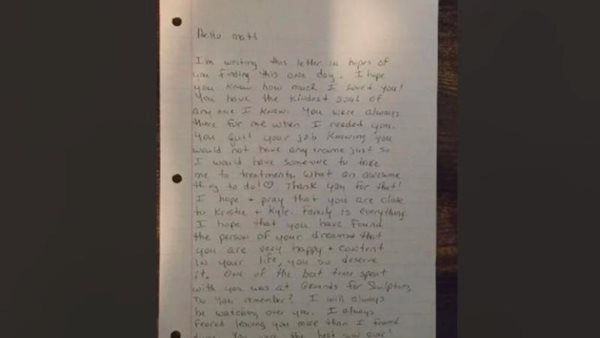 Hello Matt
I'm writing this letter in hopes of
you finding this one day. I hope
you knew how much I loved you!
You have the kindest soul of
any one I knew. You were always
there for me when I needed you.
You quit your job knowing you
would not have any income just so
I would have someone to take
me to treatments. What an awesome
thing to do!♡ Thank you for that!
I hope + pray that you are close
to Kristie + Kyle. Family is everything.
I hope that you have found
the person of your dreams that
you are very happy + content
in your life, you so deserve
it. One of the best times spent
with you was at Grounds for Sculpture,
Do you remember? I will always
be watching over you. I always
feared leaving you more than I feared
You were the best son ever!